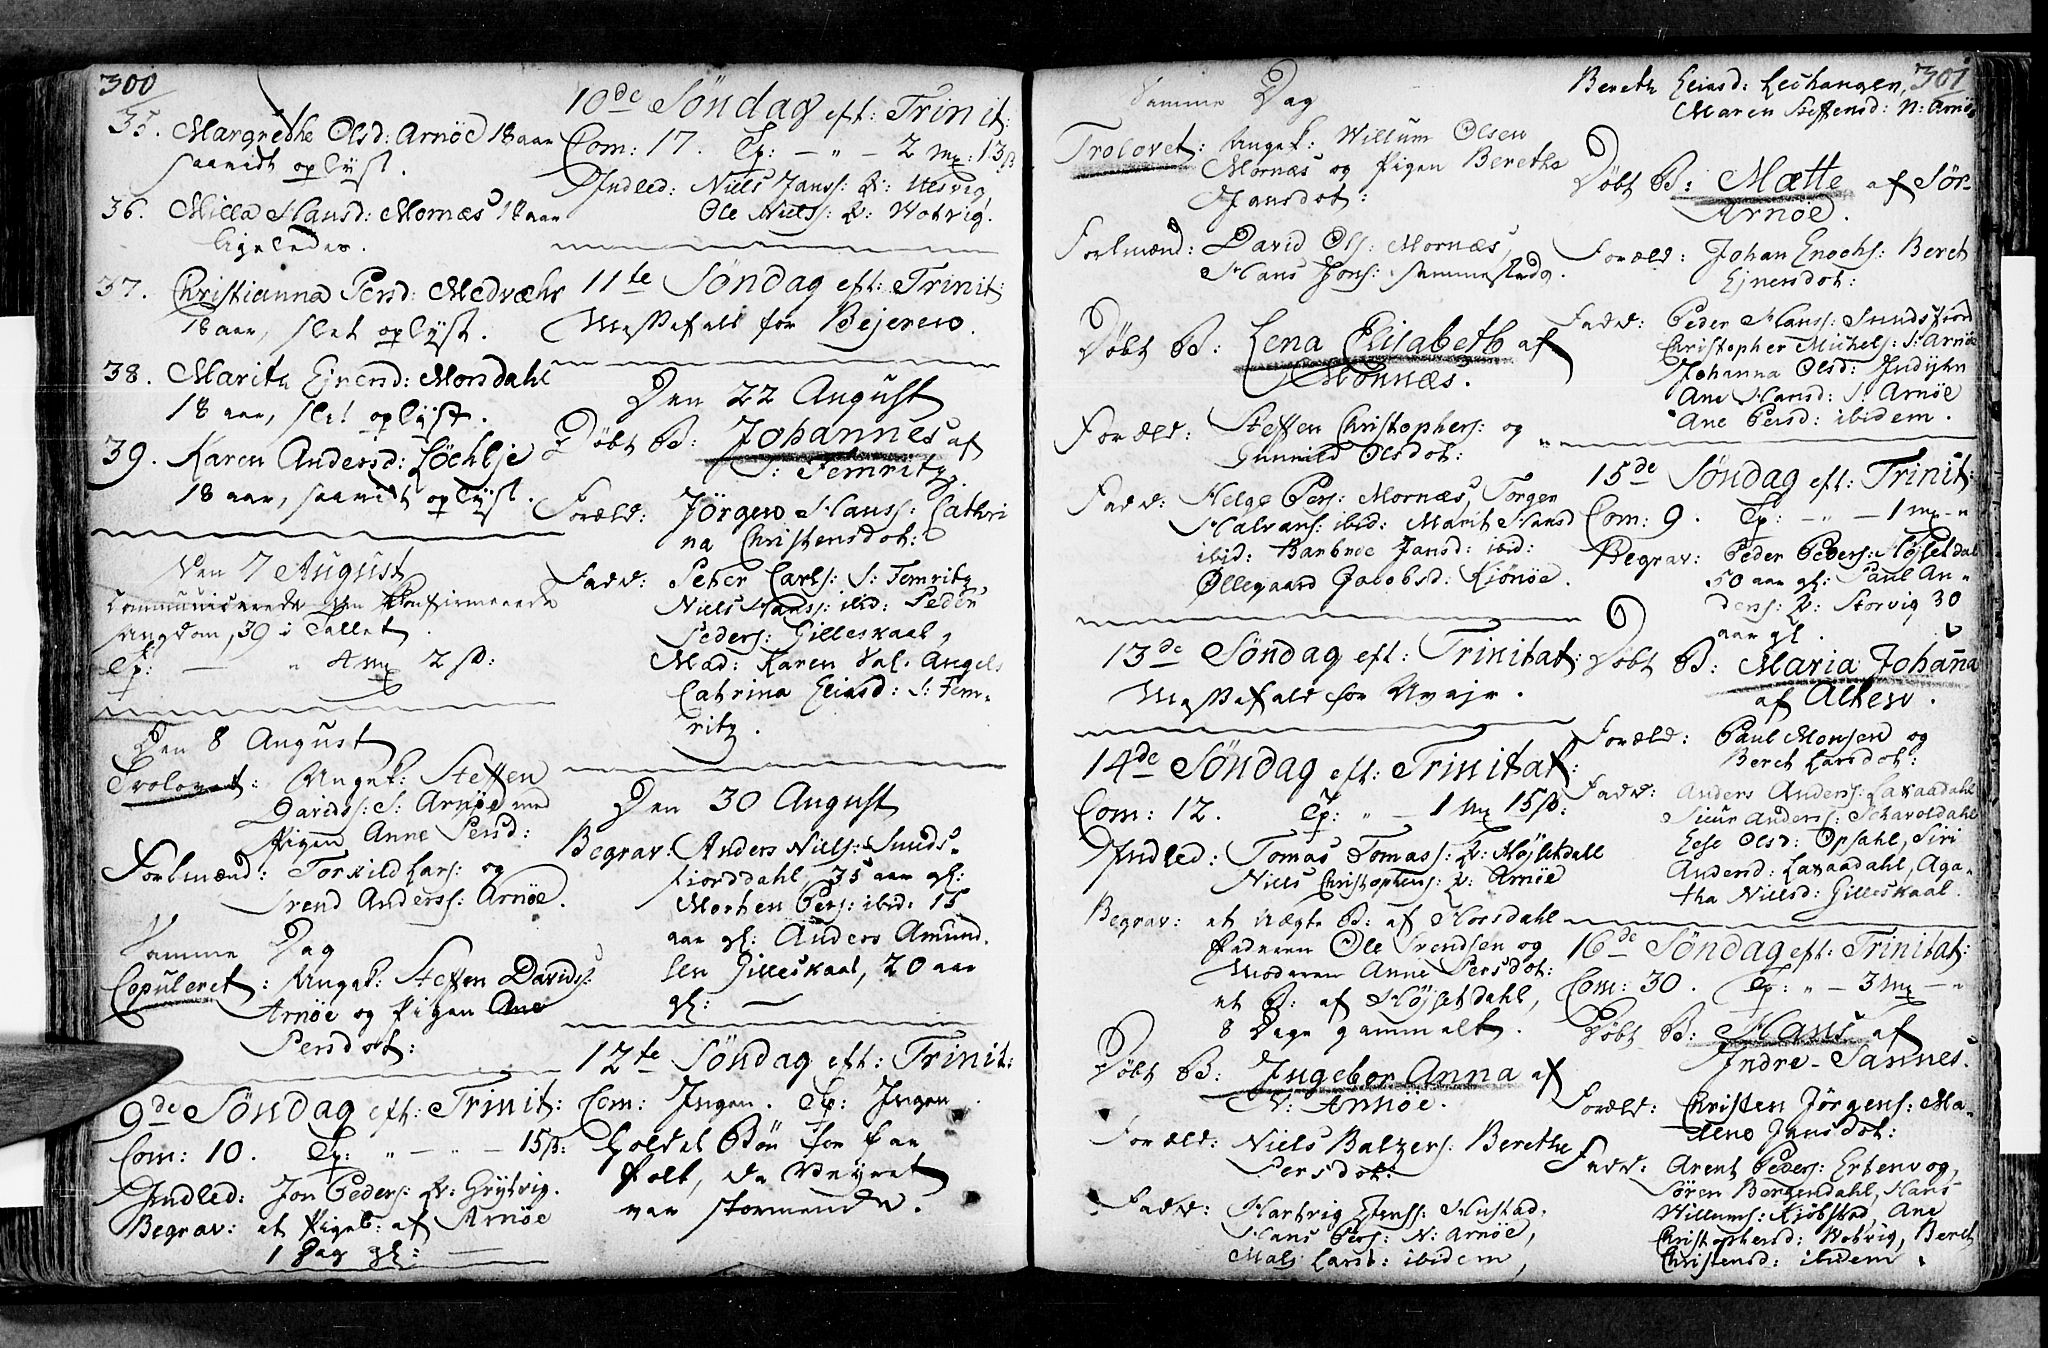 300
35. Margrethe Olsd: Arnøe 18 aar
saavidt oplyst.
36. Milla Hansd: Mornæs 18 aar
ligeledes.
37. Christianna Persd: Medvæhr
18 aar, slet oplyst.
38. Marith Ejnersd: Morsdahl
18 aar, slet oplyst.
39. Karen Andersd: Løchlje
18 aar, saavidt oplyst.
Den 7 August
communicerede den Confirmerede
ungdom, 30 i Tallet.
Tp: — " 4 mk 2 sk:
Den 8 August
Trolovet: Ungk: Steffen
Davids: S: Arnøe med
Pigen Anne Persd:
Forlmænd: Torkild Lars: og
Trend Anderss: Arnøe.
Samme Dag
Copuleret: Ungk: Steffen Davids:
Arnøe og Pigen Ane
Persdot:
9de Søndag eft: Trinit:
Com: 10. Tp: " — " — 15 sk:
Indled: Jon Peders: K: Grytvig.
Begrav: et Pigeb: af Arnøe
1 Dag gl: —
10de Søndag eft: Trinit:
Com: 17. Tp: — " — 2 mk: 13 sk
Indled: Niels Janss: K: Ulsvig
Ole Niels: K: Wotvig.
11te Søndag eft: Trinit:
Messefald for Bejeren.
Den 22 August
Døbt B: Johannes af
S: Femritz.
Foræld: Jörgen Hanss: Cathri
na Christensdot:
Fadd: Peter Carls: S: Femritz,
Niels Hanss: ibid: Peder
Peders: Gilleskaal,
Mad: Karen Sal. Angels
Catrina Eliasd: S: Fem-
ritz.
Den 30 August
Begrav: Anders Niels: Sunds-
fiorddahl, 35 aar gl:
Morten Pers: ibid: 15
aar gl: Anders Amund.
sen Gilleskaal, 20 aar
gl: —
12te Søndag eft: Trinit:
Com: Ingen. Tp: Ingen.
Holdet Bøn for faa
folk, da Vejret
var stormende.
Samme Dag
Trolovet: Ungk: Willum Olsen
Mornæs og Pigen Berethe
Jansdot:
Forlmænd: David Ols: Mornæs,
Hans Jons: sammesteds.
Døbt B: Lena Elisabeth af
Mornæs.
Foræld: Steffen Christophers: og
Gunnild Olsdot:
Fadd: Helge Pers: Mornæs, Torger
Halvars: ibid: Marit Hansd
ibid: Barbroe Jansd: ibid:
Øllegaard Jacobsd: Kiønøe.
13de Søndag eft: Trinitat:
Messefald for Uvejr.
14de Søndag eft: Trinitat:
Com: 12. Tp: " — 1 mk 15 sk:
Indled: Tomas Tomass: K: Højsetdall
Niels Christophers: K: Arnøe
Begrav: et uægte B: af Morsdahl
Faderen Ole Trendsen og
Moderen Anne Persdot:
et B: af Højsetdahl,
8 Dage gammelt.
Døbt B: Ingebor Anna af
N: Arnøe.
Foræld: Niels Balzers: Berethe
Persdot:
Fadd: Hartvig Jenss: Hustad.
Hans Pers: N: Arnøe,
Mals Larsd: ibidem,
Bereth Eliasd: Lechangen, 301
Maren Steffensd: N: Arnø.
Døbt B: Mætte af Sør-
Arnøe.
Foræld: Johan Enochs: Beret
Ejnersdot:
Fadd: Peder Hanss: Sundsfiord
Christopher Michels: S: Arnøe
Johanna Olsd: Indijhr
Ane Hansd: S: Arnøe
Ane Persd: ibidem.
15de Søndag eft: Trinit:
Com: 9. Tp: — " — 1 mk — "
Begrav: Peder Peders: Højsetdal
50 aar gl: Paul An-
ders: K: Storvig 30
aar gl.
Døbt B: Maria Johanna
af Alten.
Foræld: Paul Monsen og
Beret Larsdot:
Fadd: Anders Anders: Laxaadahl
Siur Anderss: Schavoldahl
Else Olsd: Opsahl, Siri
Andersd: Laxaadahl, Aga-
tha Nielsd: Gilleskaal.
16de Søndag eft: Trinitat:
Com: 30. Tp: " — 3 mk — "
Døbt B: Hans af
Indre-Sannes.
Foræld: Christen Jørgens: Ma-
lene Jansdot:
Fadd: Arent Peders: Ertenvog,
Søren Borgendahl, Hans
Willums: Kjøbstad Ane
Christophersd: Wotvig, Beret
Christensd: ibidem.